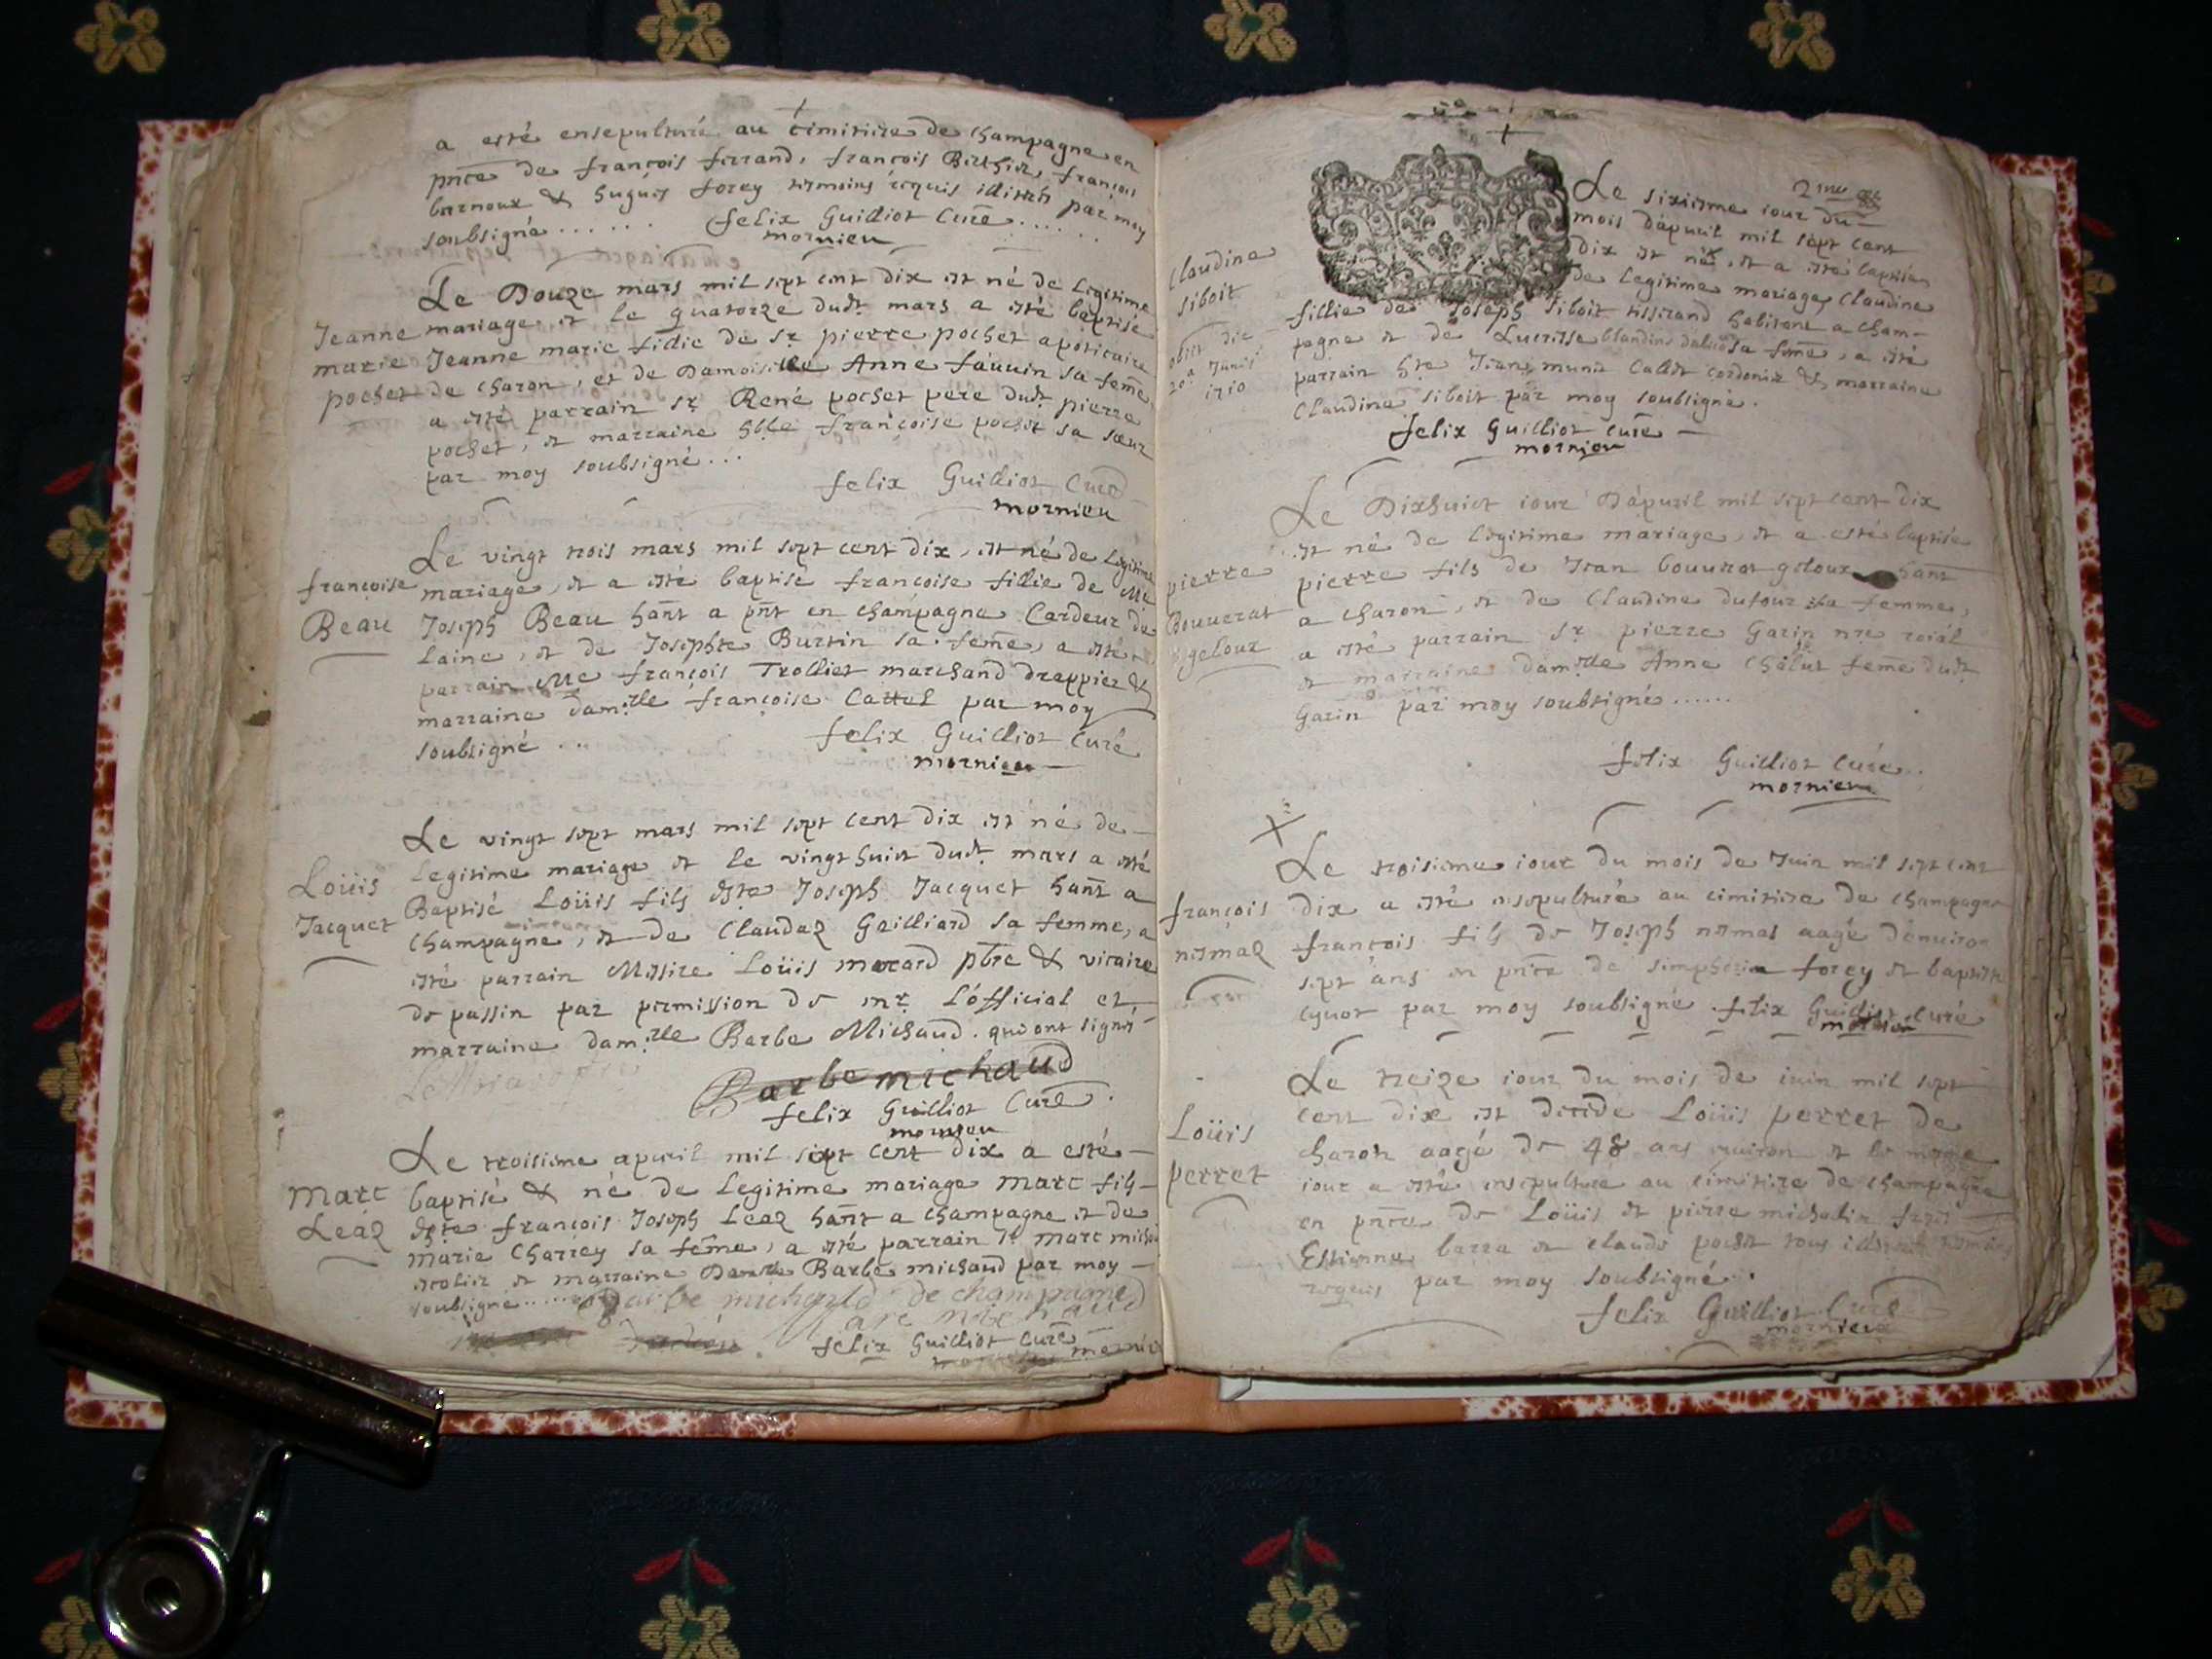 a esté ensepulturé au cimitiere de champagne en
pnce de françois ferrand, françois Berthier, françois
barnoux & hugues forey tesmoins requis illiterés par moy
soubsigné ...... felix Guilliot Curé ......
mornieu
Le Douze mars mil sept cent dix est né de legitime
mariage et le quatorze dudt. mars a esté baptisé
Jeanne marie fillie de sr. pierre pochet apoticaire
de charon, et de Damoiselle Anne fauuin sa feme
a esté parrain sr. René pochet pere dudt pierre
pochet, et marraine françoise pochet sa sœur
par moy soubsigné ...
Jeanne
marie
pochet
felix Guilliot Curé
mornieu
Le vingt trois mars mil sept cent dix, est né de legitime
mariage, et a esté baptisé francoise fillie de Me
Joseph Beau hant a pnt en champagne Cardeur de
laine, et de Josephte Burtin sa feme, a esté
parrain Me françois Trolliet marchand drappier &
marraine dam.lle françoise Cattel par moy
soubsigné ...
françoise
Beau
felix Guilliot Curé
mornieu
Le vingt sept mars mil sept cent dix est né de
legitime mariage et le vingt huict dudt. mars a esté
Baptisé Loüis fils Joseph Jacquet hant a
champagne, et de Claudaz Gailliard sa femme, a
esté parrain Messire Loüis morard pbre & vicaire
de passin par permission de mr. L'official et
marraine dam.lle Barbe Michaud. qui ont signé
Loüis
Jacquet
Barbe michaud
felix Guilliot Curé.
mornieu
Le troisieme apuril mil sept cent dix a esté
baptisé & né de legitime mariage marc fils
françois Joseph Leaz hant a champagne et de
marie Charrey sa feme, a esté parrain sr. marc
escolier et marraine Barbe michaud par moy
soubsigné ......
Marc
Leaz
Barbe michauld de champagne
Marc michaud
felix Guilliot Curé
mornieu
2me
Le sixieme iour du
mois dapuril mil sept cent
dix est né, et a esté baptisée
de legitime mariage, Claudine
fillie de Joseph siboit tisserand habitant a cham-
pagne et de Lucresse blandine sa feme, a esté
parrain Callet cordonier & marraine
Claudine siboit par moy soubsigné.
Claudine
siboit
obiit die
20a Junii
1710
felix Guilliot curé
mornieu
Le Dixhuict iour Dapuril mil sept cent dix
est né de legitime mariage, et a esté baptisé
pierre fils de Jean bouurat geloux hant
a charon, et de Claudine dufour sa femme,
a esté parrain sr. pierre Garin nre roial
et marraine dam.lle Anne Châlut feme dudt
Garin par moy soubsigné ......
pierre
Bouuerat
geloux
felix Guilliot Curé.
mornieu
Le troisieme iour du mois de Juin mil sept cent
dix a esté ensepulturé au cimitiere de champagne
françois fils de Joseph nesmes aagé denuiron
sept ans en pnce de simphorien forey et baptiste
cyuot par moy soubsigné. felix Guilliot Curé
mornieu
françois
nesmaz
Le treize iour du mois de iuin mil sept
cent dix est decidé Loüis perret de
charon aagé de 48 ans enuiron et le mesme
iour a esté ensepulturé au cimitiere de champagne
en pnce de Loüis et pierre michelin freres
Estienne barra et claude pochet tous
requis par moy soubsigné.
Loüis
perret
felix Guilliot Curé
mornieu